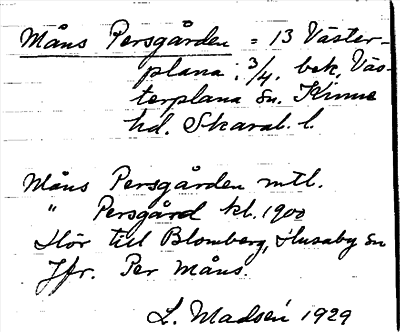 Måns Persgården = 13 Väster-
plana: 3/4. bek. Väs-
terplana Sn. Kinne
hd. Skarab. l.
Måns Persgården mtl.
" Persgård kl. 1900
Hör till Blomberg, Husaby Sn
Jfr. Per Måns.
L. Madsén 1929